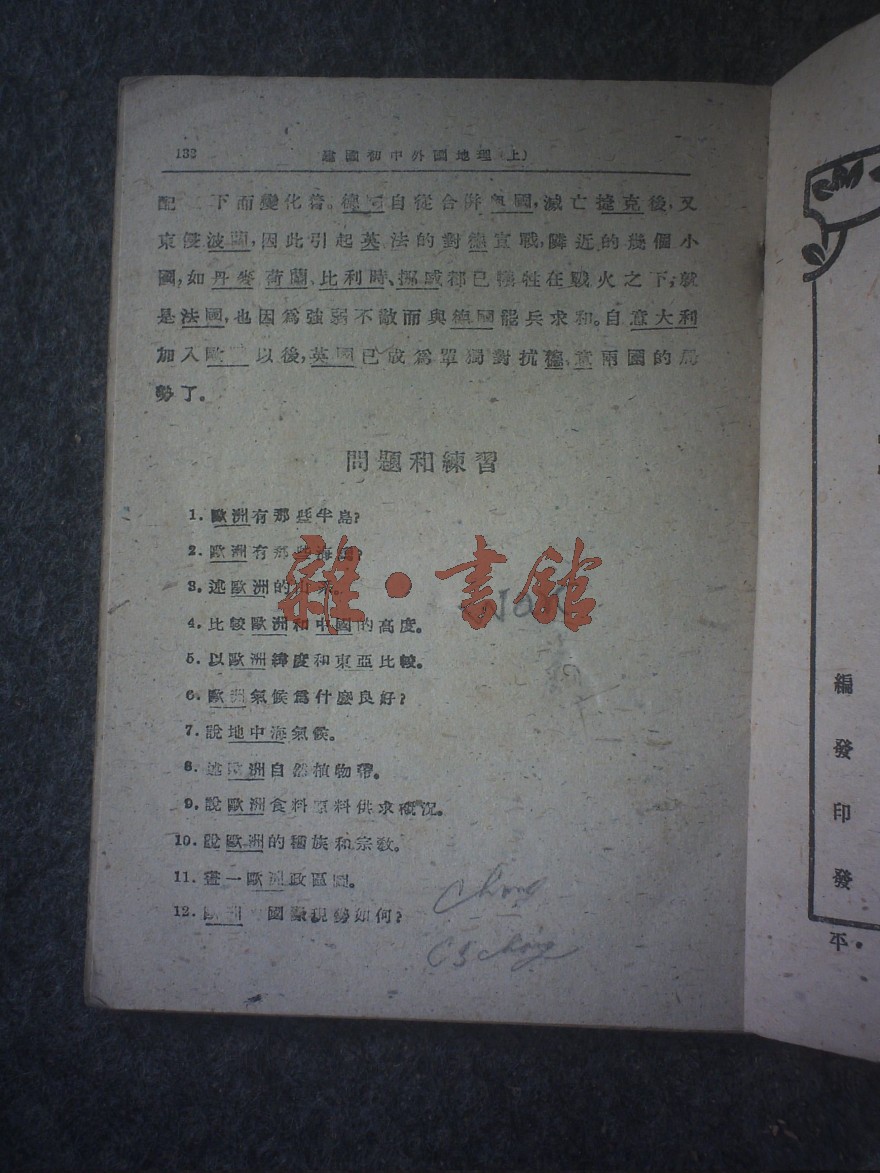 132 建國初中外國地理(上)
配 二 下而變化着。德國自從合併奧國,滅亡捷克後,又
東侵波蘭,因此引起英法的對德宣戰,隣近的幾個小
國,如丹麥荷蘭、比利時、挪威都已犧牲在戰火之下;就
是法國,也因爲強弱不敵而與德國罷兵求和。自意大利
加入歐 以後,英國已成爲單獨對抗德、意兩國的局
勢了。
問題和練習
1. 歐洲有那些半島?
2. 歐洲有那些海
3. 述歐洲的山系。
4. 比較歐洲和中國的高度。
5. 以歐洲緯度和東亞比較。
6. 歐洲氣候爲什麼良好?
7. 說地中海氣候。
8. 述歐洲自然植物帶。
9. 說歐洲食料原料供求概況。
10. 說歐洲的種族和宗教。
11. 畫一歐洲政區圖。
12. 歐洲 國際現勢如何?
雜·書館
編
發
印
發
平